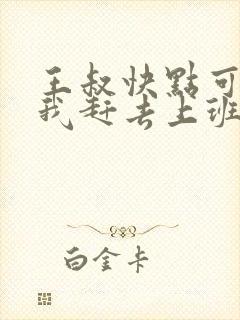 王叔快點可
我赶去上班
白金卡